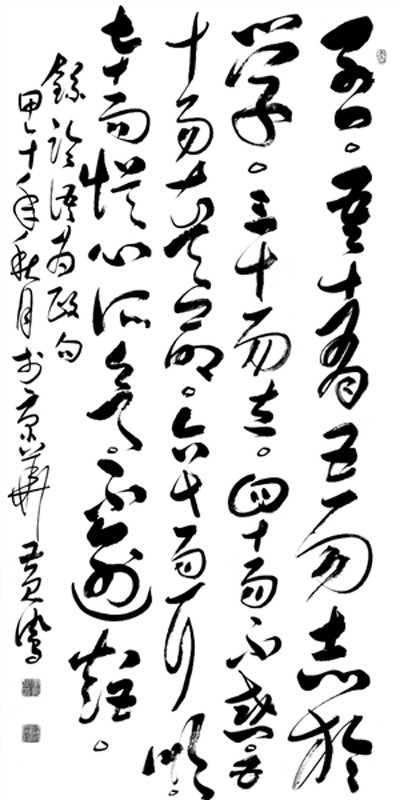 子曰。吾十有五而志於
学。三十而立。四十而不惑。五
十而知天命。六十而耳順。
七十而從心所欲。不逾矩。
錄論語為政句
甲午年秋月於京華